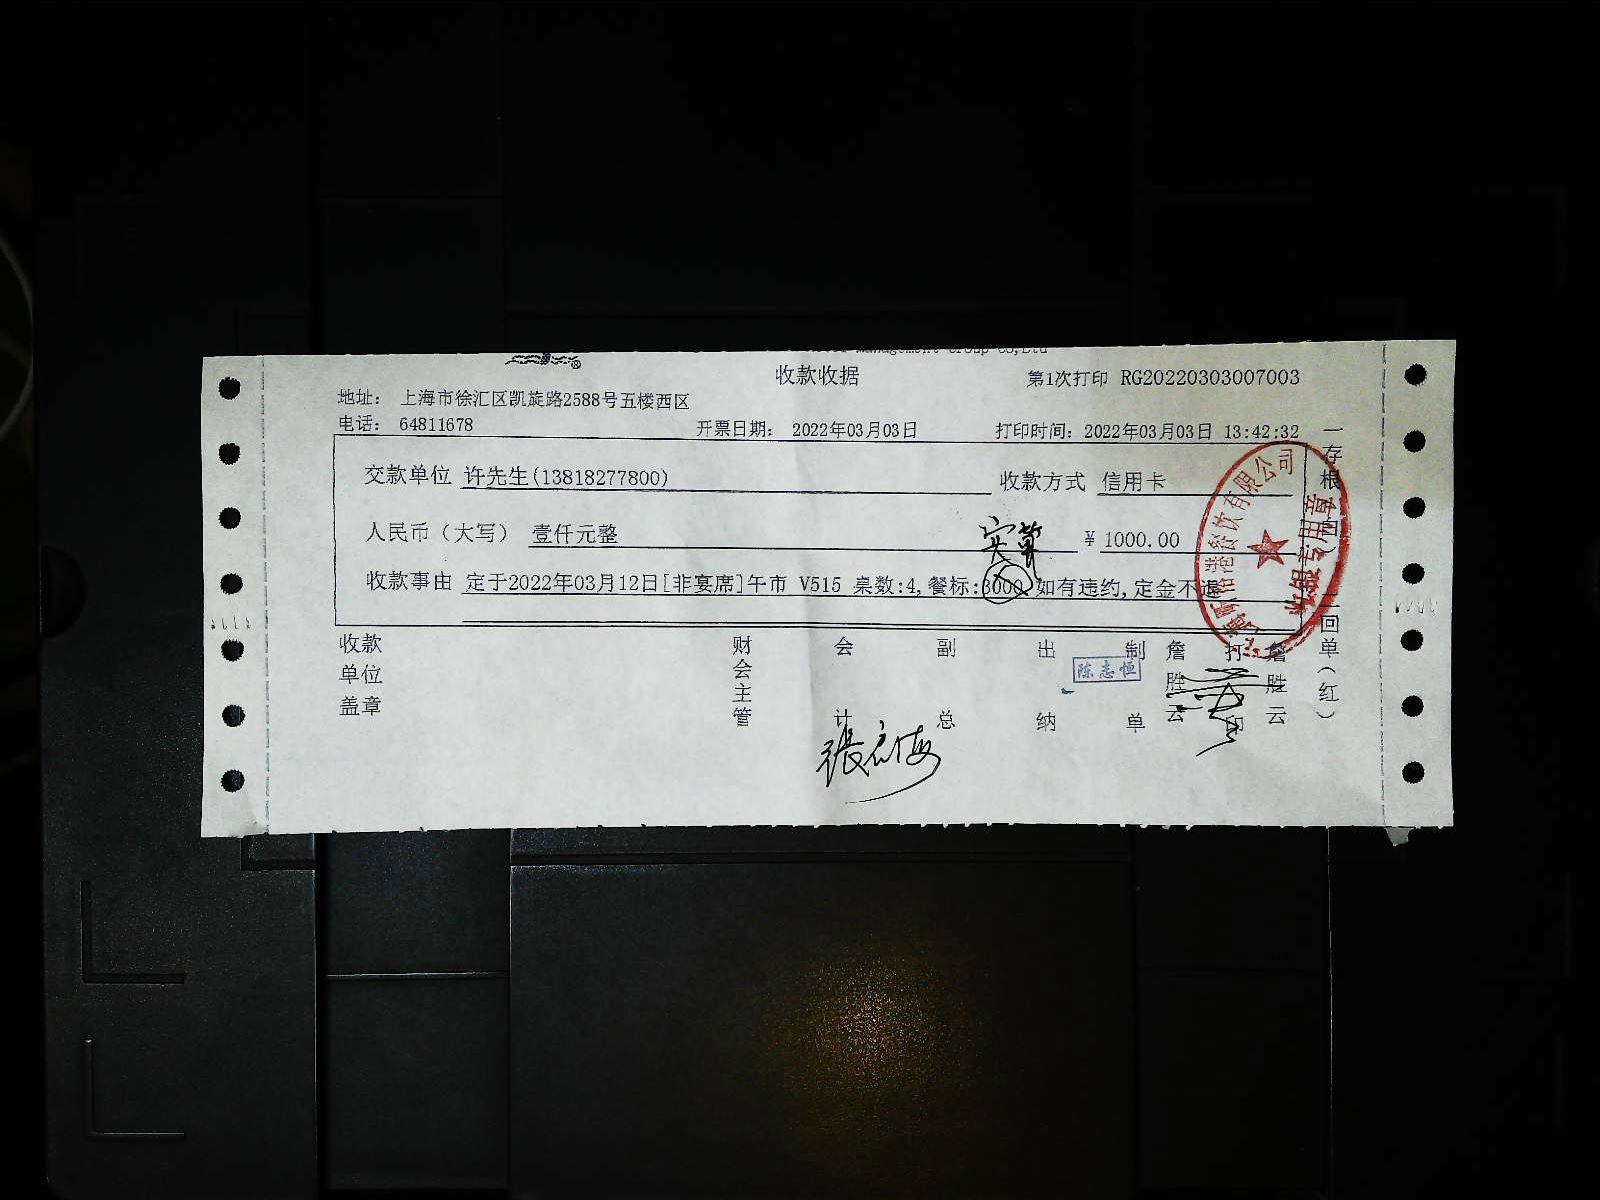 Management Group Co,Ltd
收款收据
第1次打印 RG20220303007003
地址： 上海市徐汇区凯旋路2588号五楼西区
电话： 64811678
开票日期： 2022年03月03日
打印时间：2022年03月03日 13:42:32
交款单位 许先生(13818277800)
收款方式 信用卡
人民币（大写） 壹仟元整
￥1000.00
收款事由 定于2022年03月12日[非宴席]午市 V515 桌数:4,餐标:3000,如有违约,定金不退
一存根
二回单（红）
收款单位盖章
财会主管
会计
副总
出纳
陈志恒
制单
詹胜云
打印
詹胜云